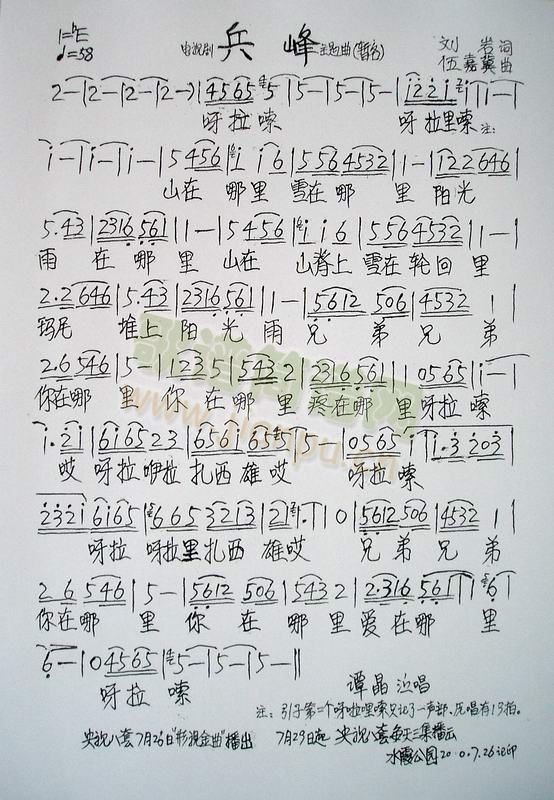 1=♭E
♩=58
电视剧 兵峰 主题曲(暂名)
刘岩 词
伍嘉冀 曲
2-|2-|2-|2-|4565 5|5-|5-|5-|i22i i|i-|
呀拉嗦 呀拉里嗦 注:
i-|i-|i-|5 456|i i6|556 4532|1-|122 646|
山在 哪里 雪在哪 里 阳光
5.43|2316 561|1-|5 456|i i6|556 4532|1-|
雨 在哪 里 山在 山脊上 雪在轮回 里
2.2 646|5.43|2316 561|1-|5612 506|4532 1|
玛尼 堆上 阳光 雨 兄弟兄 弟
2.6 546|5-|123 5|543 2|2316 561|1 0565|i-|
你在哪 里 你 在哪里 疼在哪 里 呀拉 嗦
i.2i|6165 23|6561 65|5-|0565 i|1.3 203|
哎 呀拉咿拉 扎西 雄哎 呀拉 嗦
2321 6165|665 3213|21.|1 0|5612 506|4532 1|
呀拉 呀拉里扎西 雄哎 兄弟兄 弟
26 546|5-|5612 506|543 2|2.316 561|6|
你在哪 里 你 在 哪里 爱在哪 里
6-|0 4565|5-|5-|5-||
呀拉 嗦
谭晶 演唱
注:引子第二个呀拉里嗦只记了一声部、原唱有13拍。
央视八套7月26日"影视金曲"播出 7月29日起 央视八套每天三集播出
水霞公园2010.7.26记印
歌谱简谱网
www.jianpu.cn